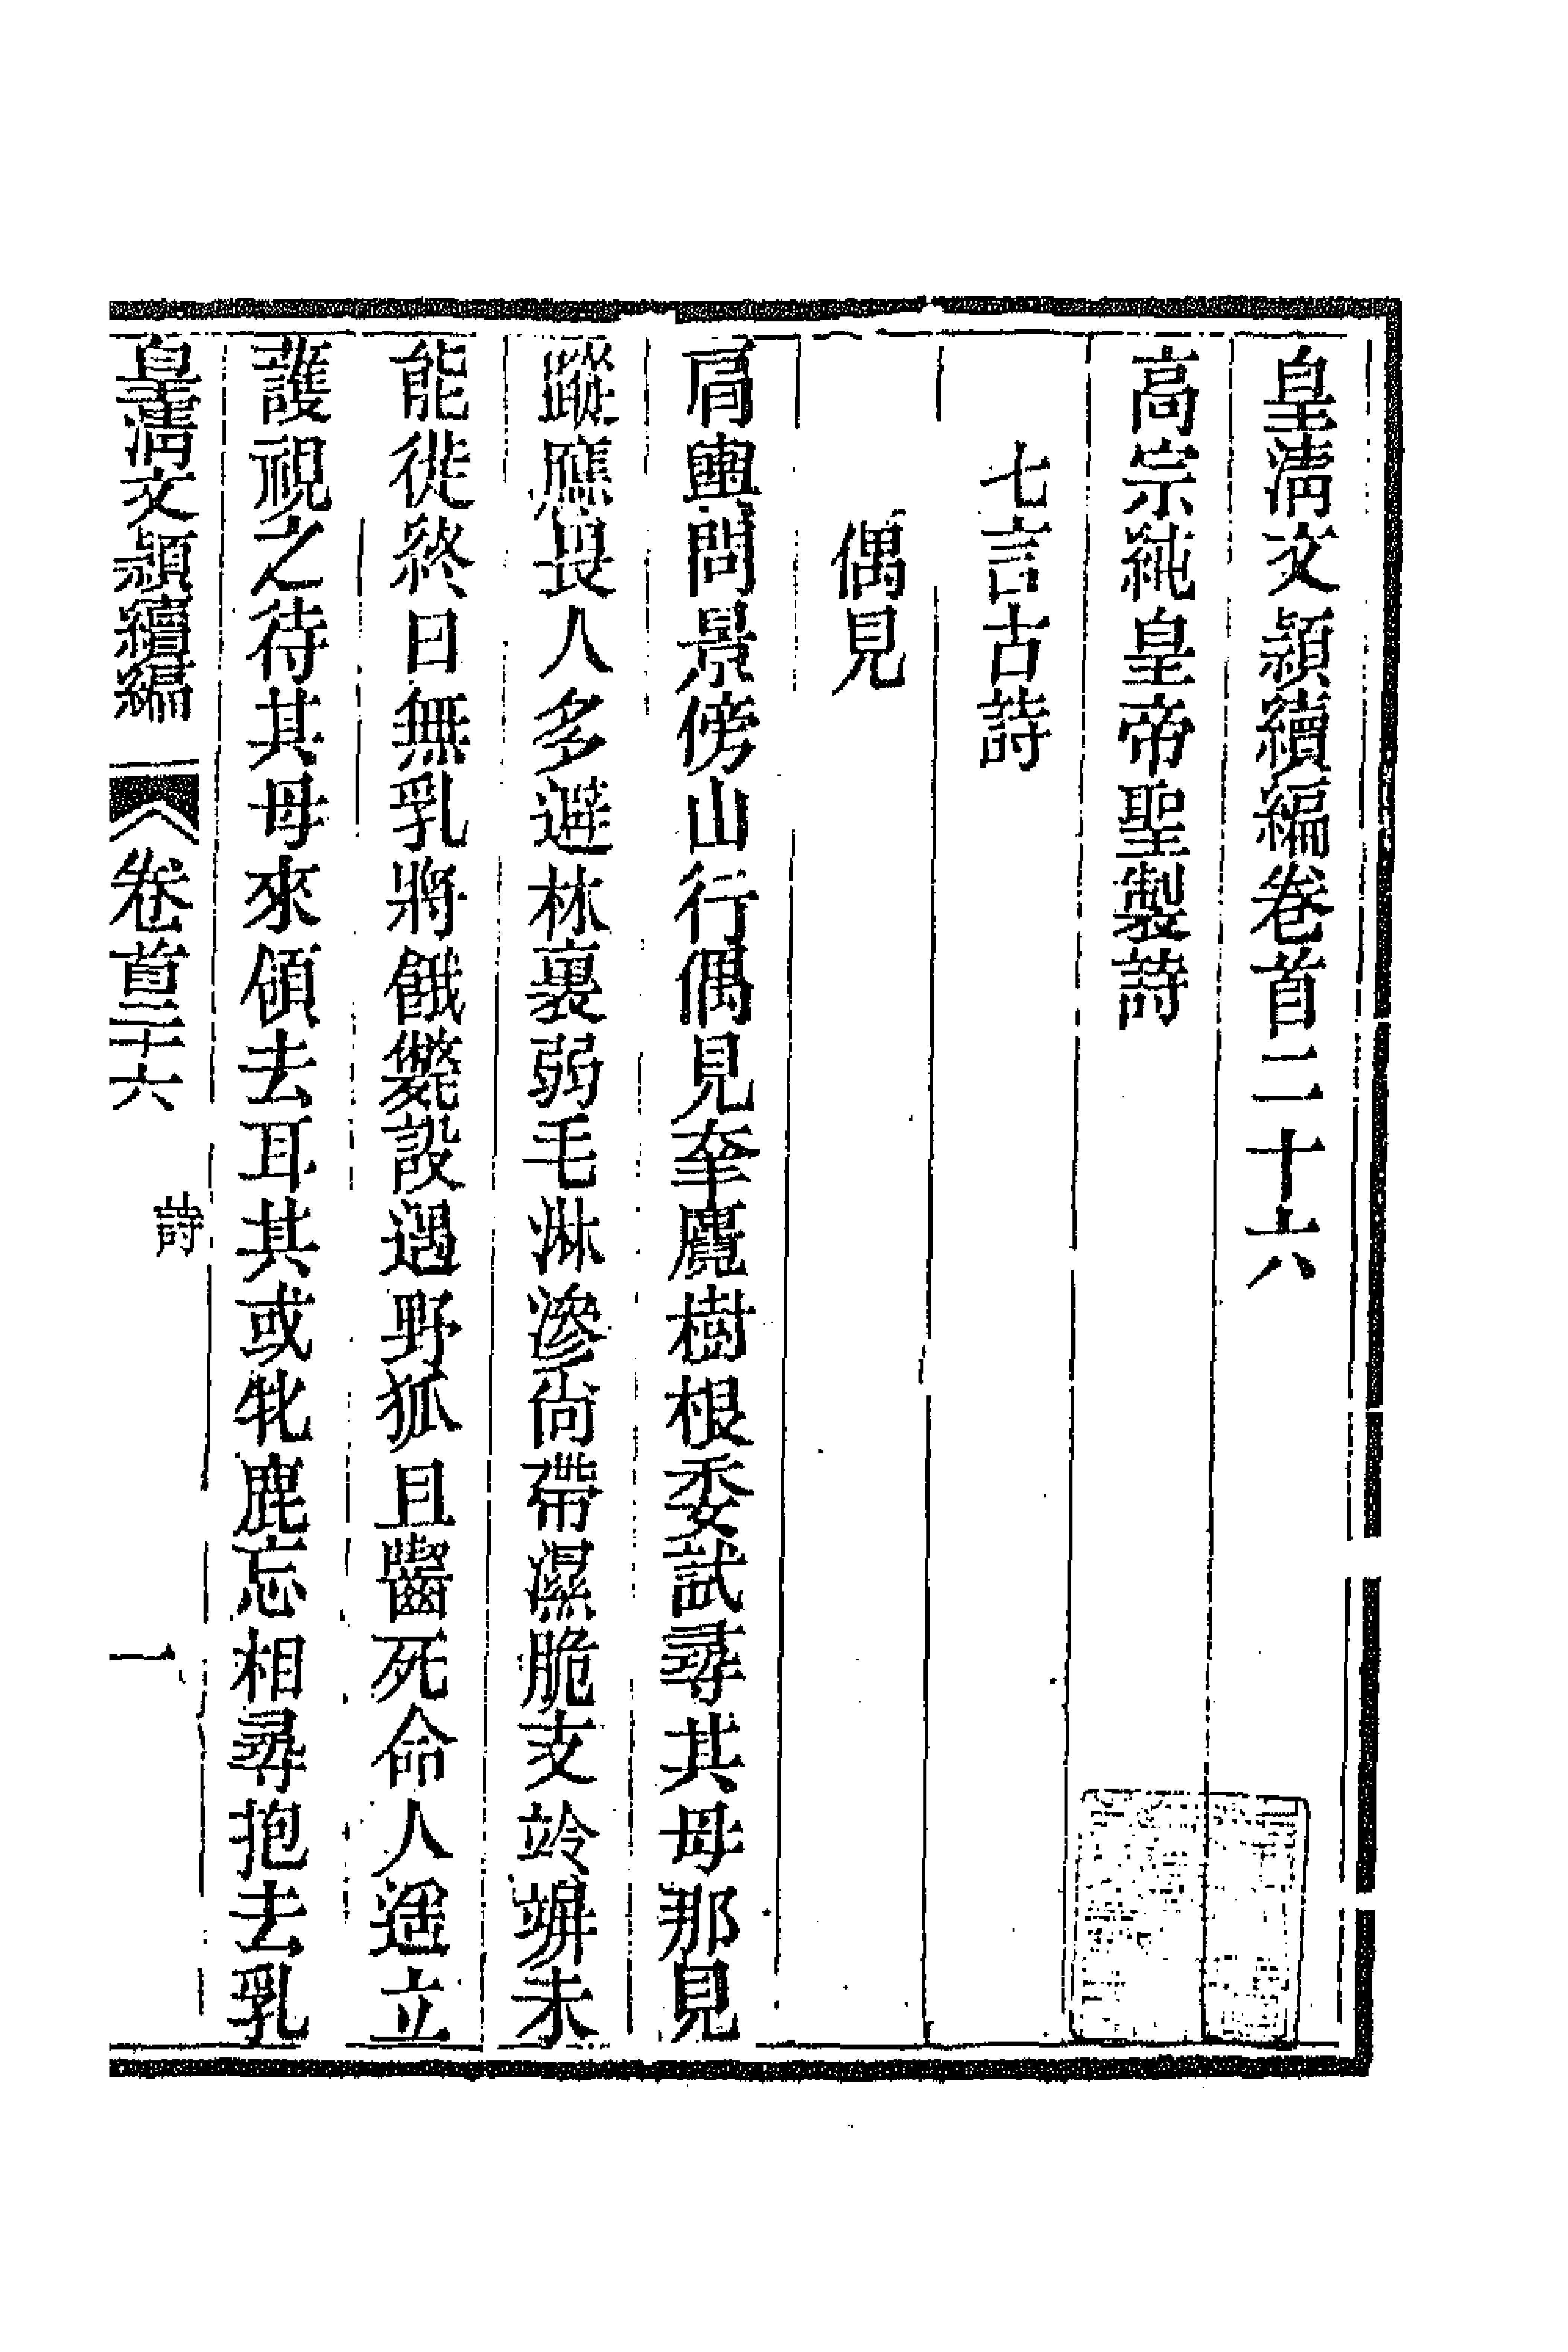 皇清文潁續編卷首二十六
高宗純皇帝聖製詩
七言古詩
偶見
肩輿問景傍山行偶見羍麑樹根委試尋其母那見
蹤應畏人多避林裏弱毛淋滲尚帶濕脆支竛竮未
能徙終日無乳將餓斃設遇野狐且齧死命人遥立
護視之待其母來領去耳其或牝鹿忘相尋抱去乳
皇清文潁續編 卷首二十六 詩 一